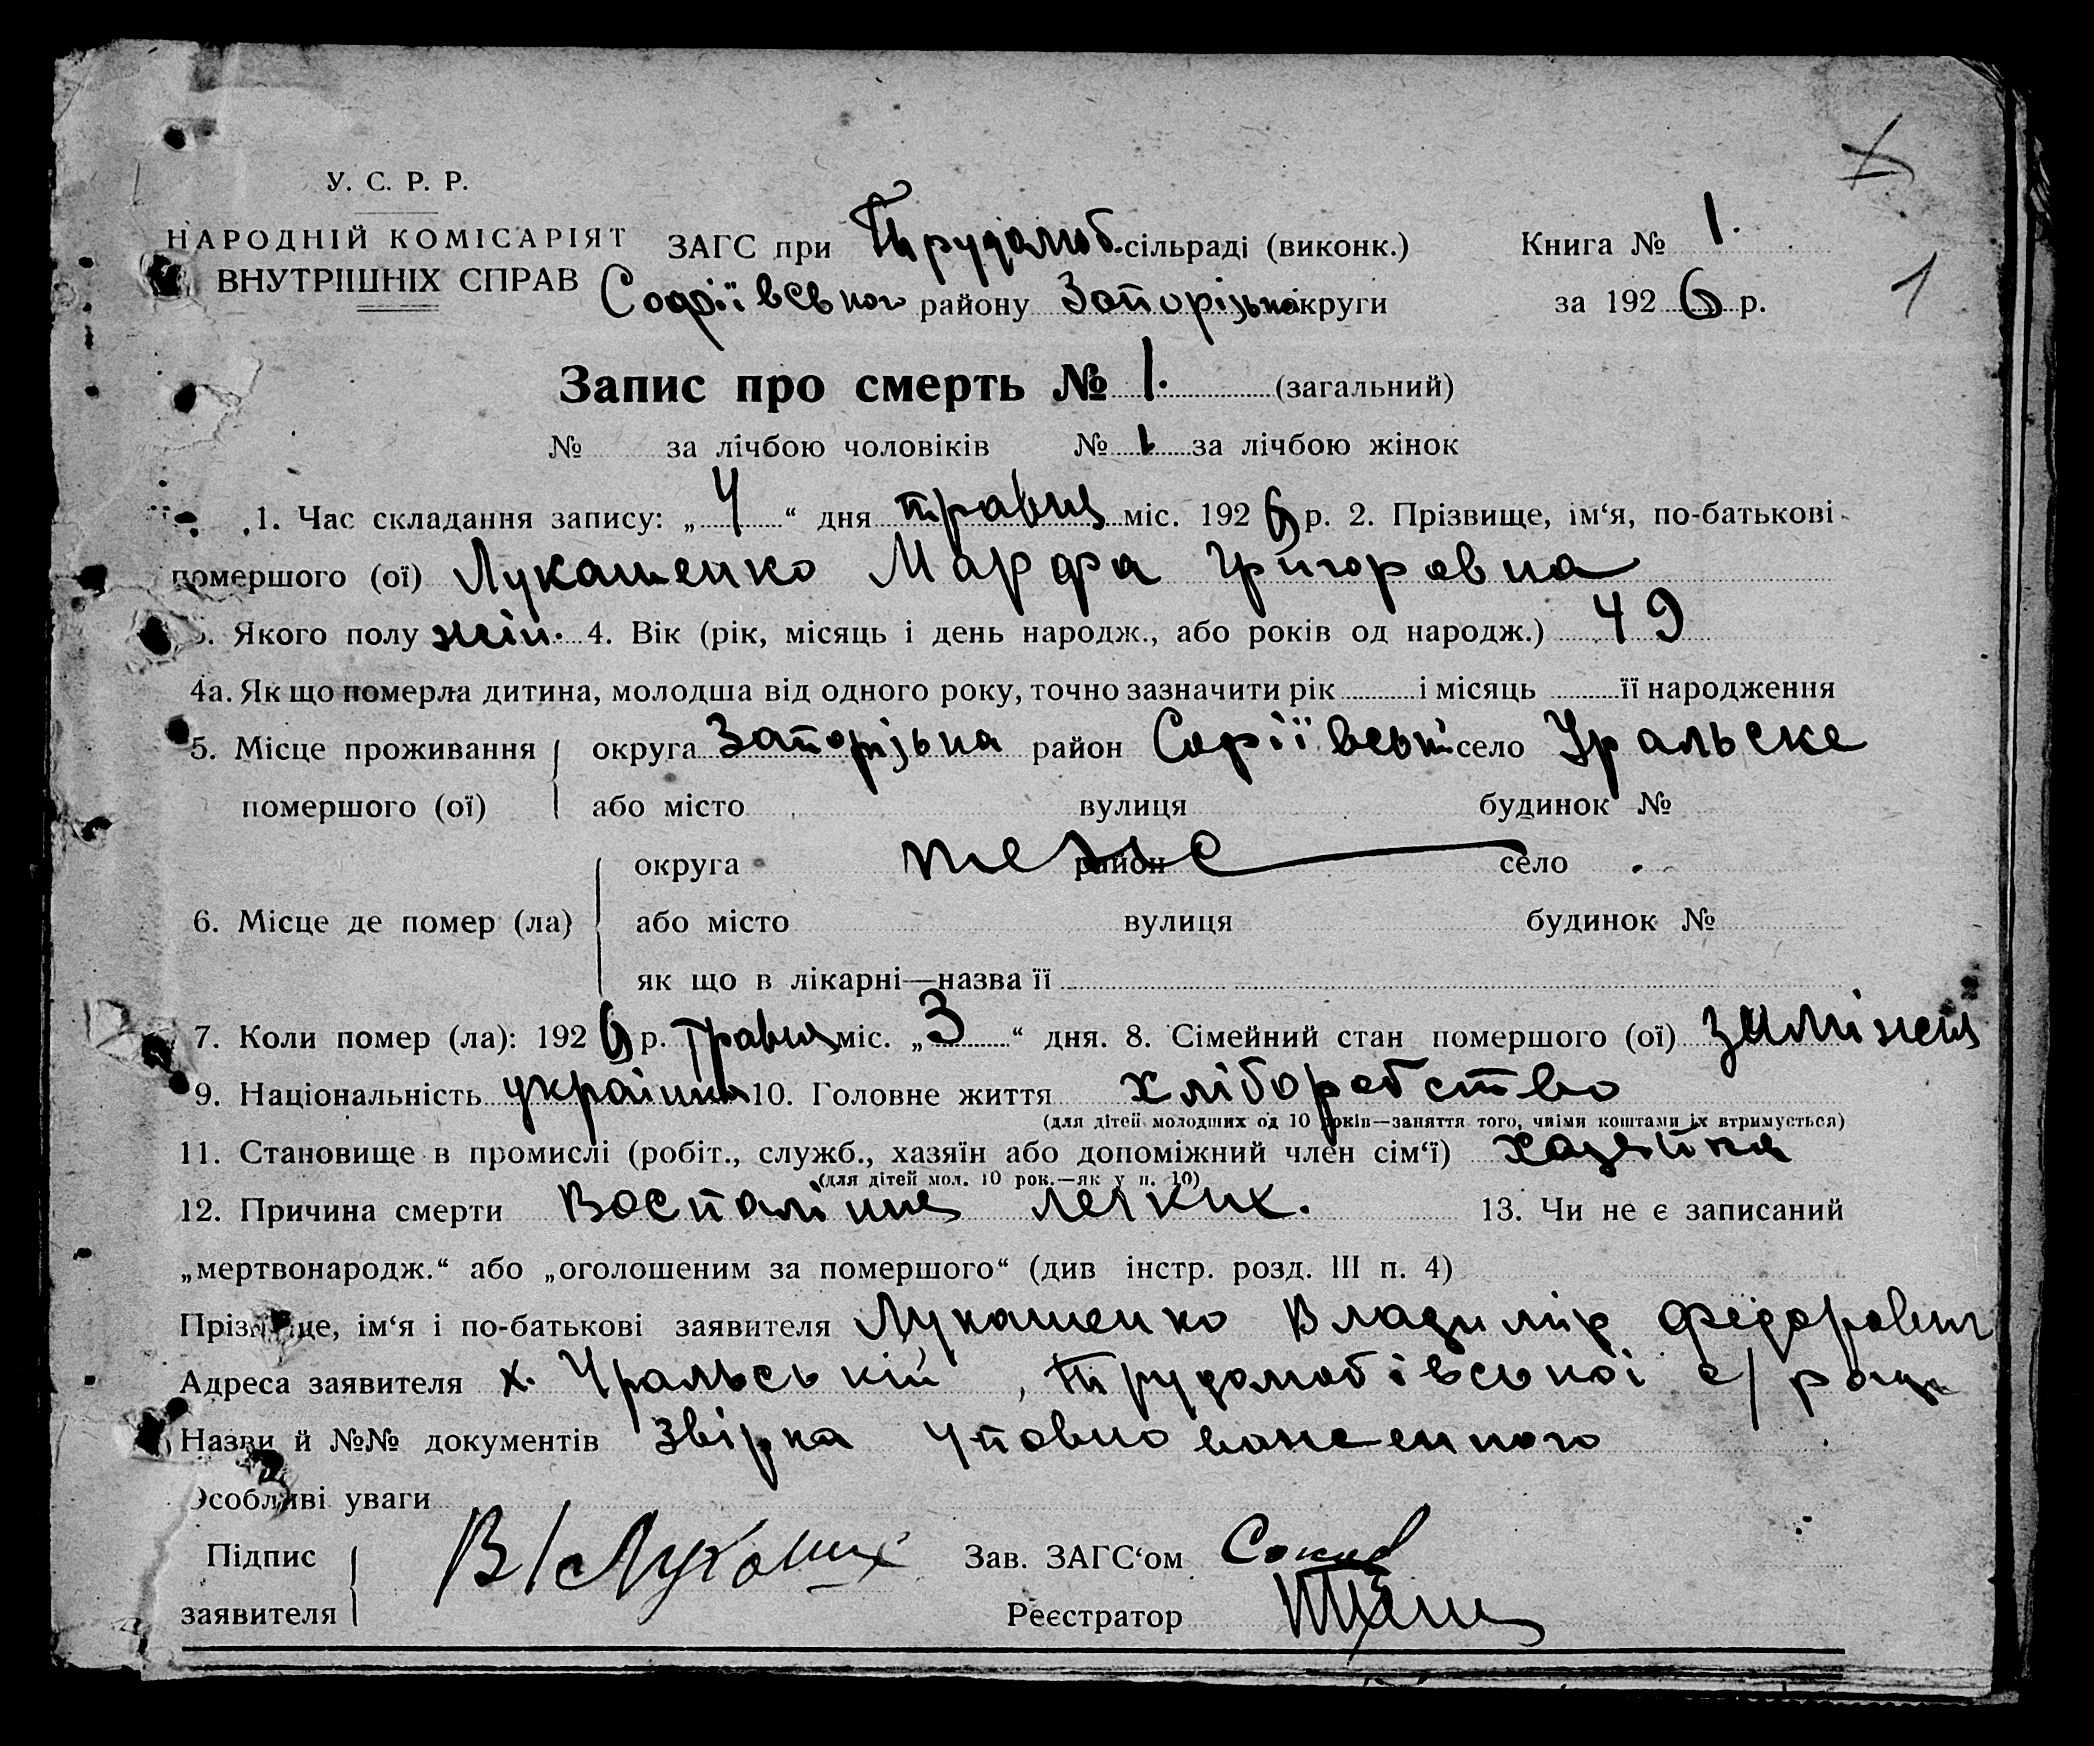 У. С. Р. Р.
НАРОДНІЙ КОМІСАРІЯТ
ВНУТРІШНІХ СПРАВ
ЗАГС при Трудолюб. сільраді (виконк.) Книга № 1.
Софіївського району Запорізької округи за 1926 р.
1
Запис про смерть № 1. (загальний)
№ за лічбою чоловіків № 1 за лічбою жінок
1. Час складання запису: „4“ дня травня міс. 1926 р. 2. Прізвище, ім‘я, по-батькові
помершого (ої) Лукашенко Марфа Григоровна
3. Якого полу жін. 4. Вік (рік, місяць і день народж., або років од народж.) 49
4а. Як що померла дитина, молодша від одного року, точно зазначити рік і місяць її народження
5. Місце проживання округа Запорізька район Софіївськ село Уральске
помершого (ої) або місто вулиця будинок №
округа теже район село
6. Місце де помер (ла) або місто вулиця будинок №
як що в лікарні—назва її
7. Коли помер (ла): 1926 р. травня міс. „3“ дня. 8. Сімейний стан помершого (ої) заміжня
9. Національність українка 10. Головне життя хліборобство
(для дітей молодших од 10 років—заняття того, чиїми коштами їх втримується)
11. Становище в промислі (робіт., служб., хазяїн або допоміжний член сім‘ї) хазяйка
(для дітей мол. 10 рок.—як у п. 10)
12. Причина смерти Воспалінне легких. 13. Чи не є записаний
„мертвонародж.“ або „оголошеним за помершого“ (див інстр. розд. III п. 4)
Прізвище, ім‘я і по-батькові заявителя Лукашенко Владимір Федорович
Адреса заявителя х. Уральській, Трудолюбівської с/ ради
Назви й №№ документів Звірка уповноваженного
Особливі уваги
Підпис В/Лукаш Зав. ЗАГС‘ом
заявителя Реєстратор